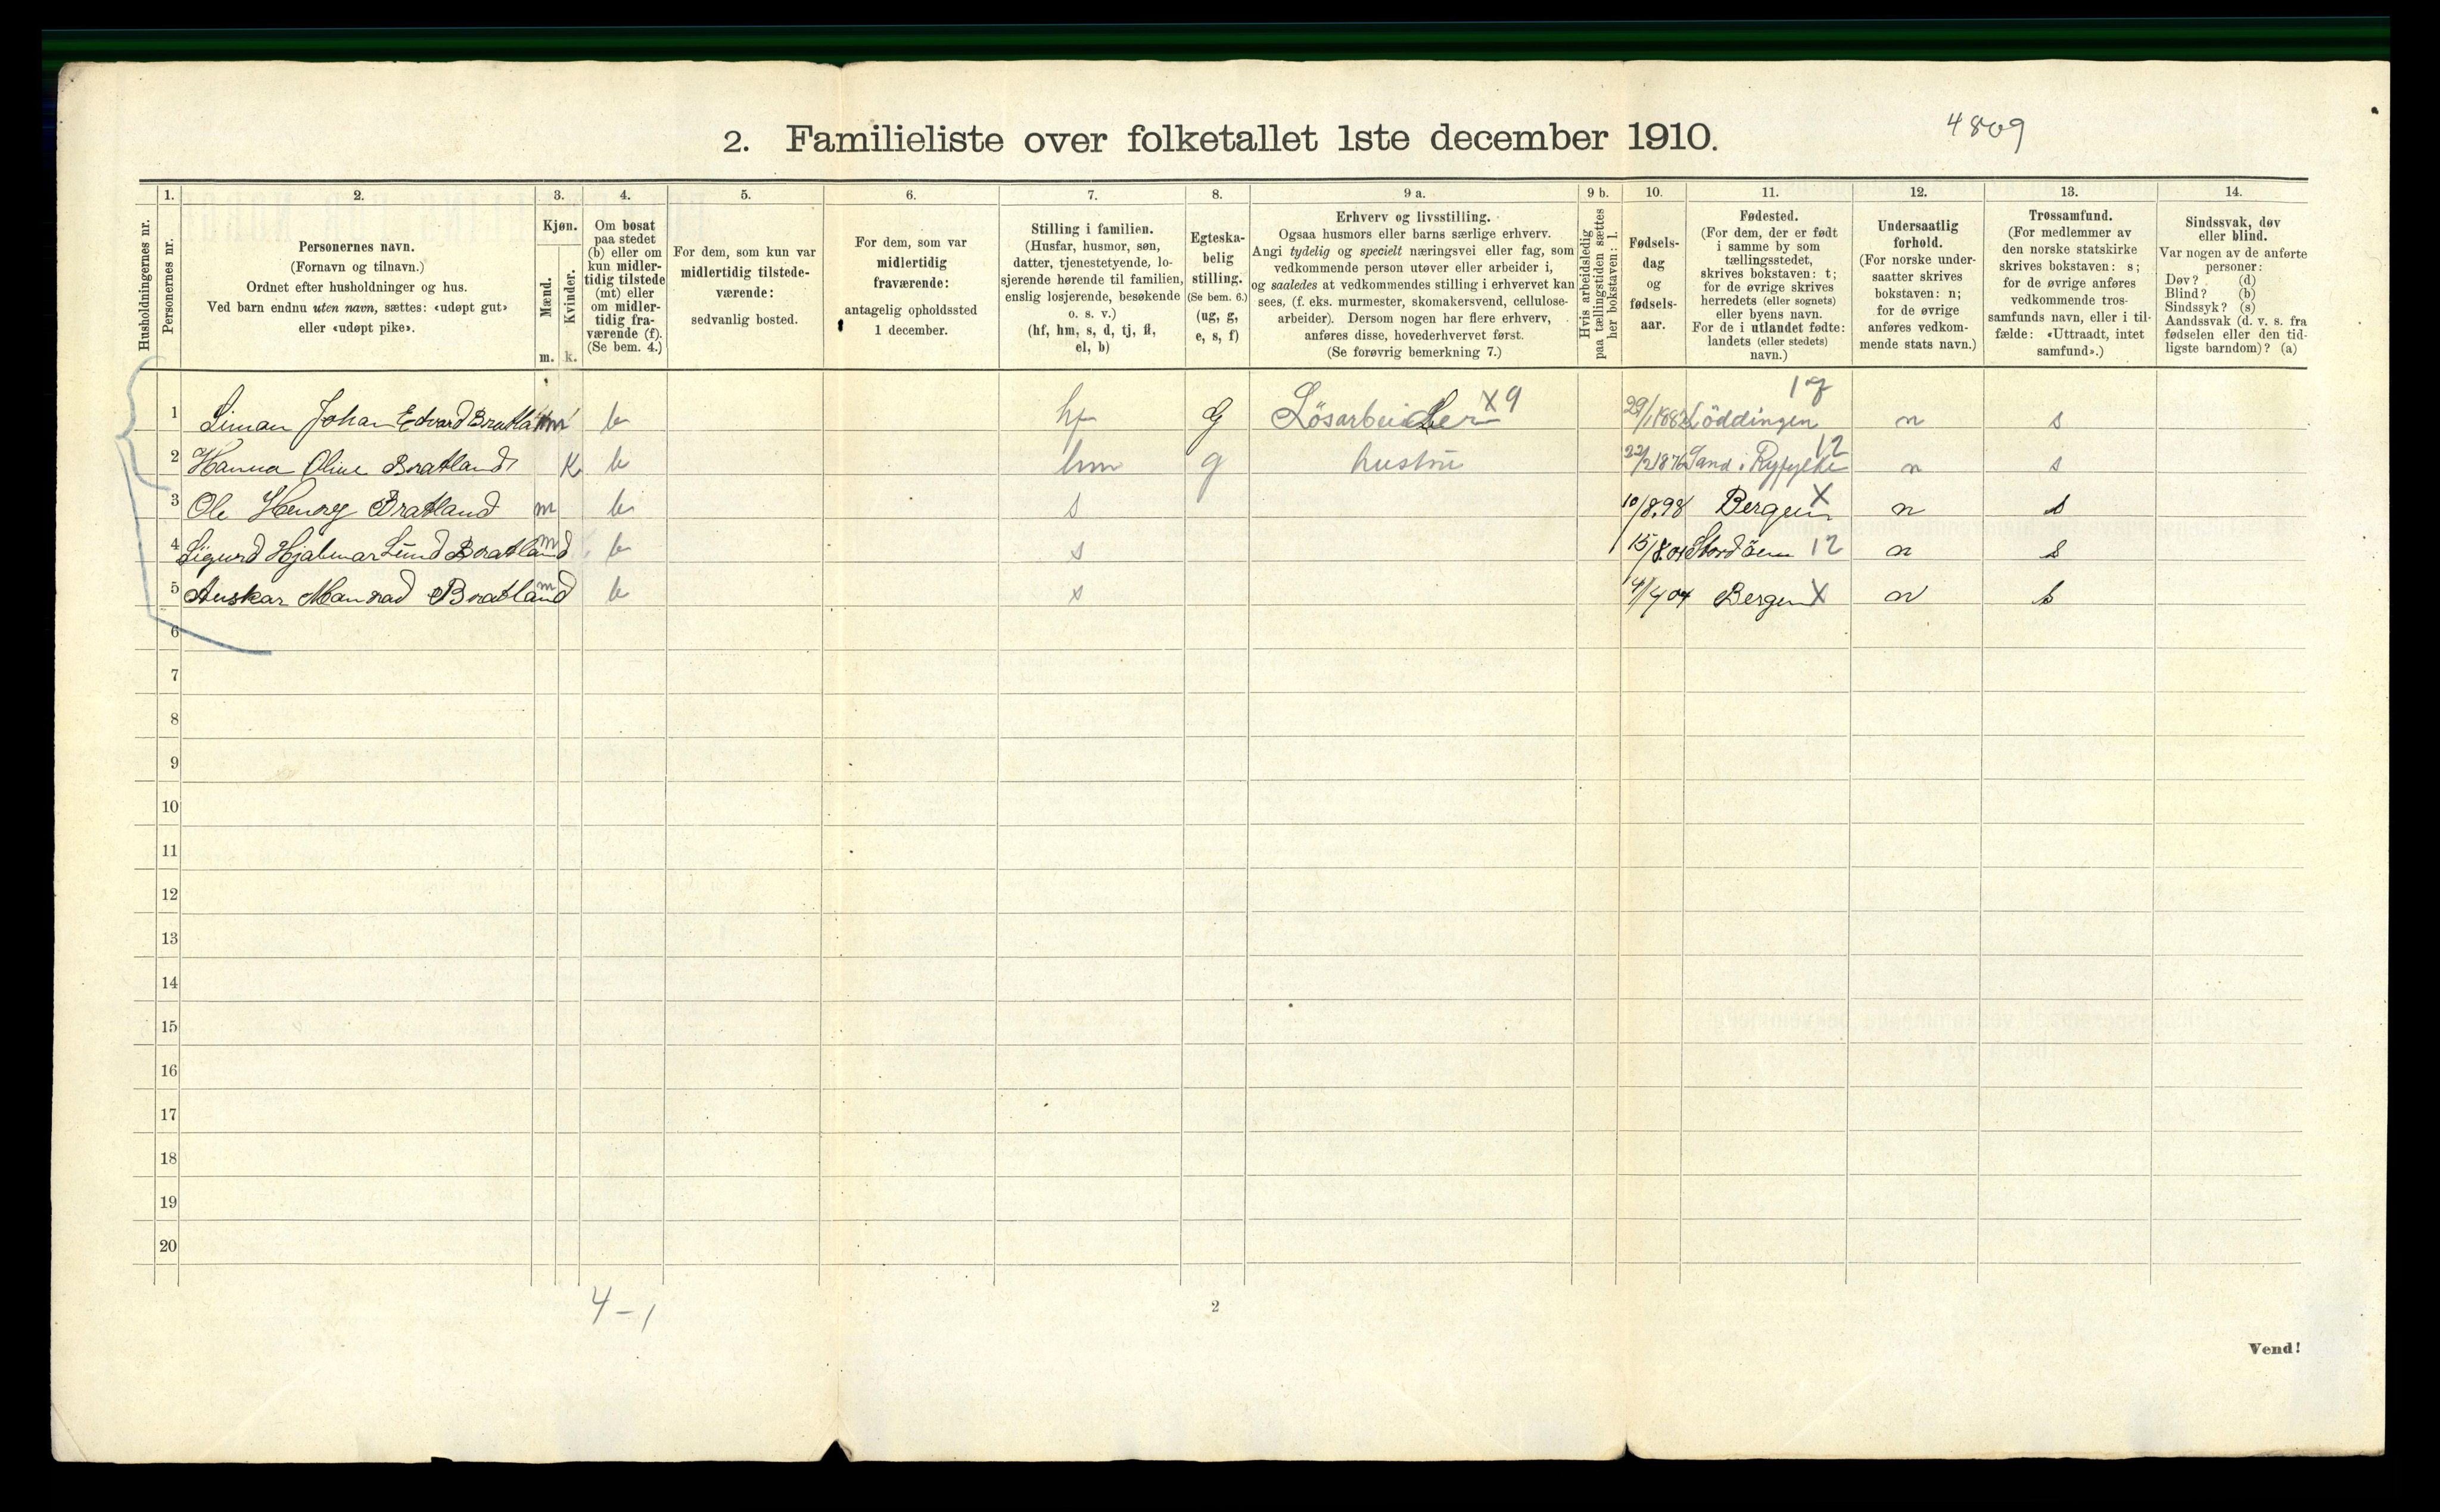 2. Familieliste over folketallet 1ste december 1910.
4809
Husholdningernes nr.
1.
Personernes nr.
2.
Personernes navn.
(Fornavn og tilnavn.)
Ordnet efter husholdninger og hus.
Ved barn endnu uten navn, sættes: «udøpt gut»
eller «udøpt pike».
3.
Kjøn.
Mænd.
Kvinder.
m. k.
4.
Om bosat
paa stedet
(b) eller om
kun midler-
tidig tilstede
(mt) eller
om midler-
tidig fra-
værende (f).
(Se bem. 4.)
5.
For dem, som kun var
midlertidig tilstede-
værende:
sedvanlig bosted.
6.
For dem, som var
midlertidig
fraværende:
antagelig opholdssted
1 december.
7.
Stilling i familien.
(Husfar, husmor, søn,
datter, tjenestetyende, lo-
sjerende hørende til familien,
enslig losjerende, besøkende
o. s. v.)
(hf, hm, s, d, tj, fl,
el, b)
8.
Egteska-
belig
stilling.
(Se bem. 6.)
(ug, g,
e, s, f)
9 a.
Erhverv og livsstilling.
Ogsaa husmors eller barns særlige erhverv.
Angi tydelig og specielt næringsvei eller fag, som
vedkommende person utøver eller arbeider i,
og saaledes at vedkommendes stilling i erhvervet kan
sees, (f. eks. murmester, skomakersvend, cellulose-
arbeider). Dersom nogen har flere erhverv,
anføres disse, hovederhvervet først.
(Se forøvrig bemerkning 7.)
9 b.
Hvis arbeidsledig
paa tællingstiden sættes
her bokstaven: l.
10.
Fødsels-
dag
og
fødsels-
aar.
11.
Fødested.
(For dem, der er født
i samme by som
tællingsstedet,
skrives bokstaven: t;
for de øvrige skrives
herredets (eller sognets)
eller byens navn.
For de i utlandet fødte:
landets (eller stedets)
navn.)
12.
Undersaatlig
forhold.
(For norske under-
saatter skrives
bokstaven: n;
for de øvrige
anføres vedkom-
mende stats navn.)
13.
Trossamfund.
(For medlemmer av
den norske statskirke
skrives bokstaven: s;
for de øvrige anføres
vedkommende tros-
samfunds navn, eller i til-
fælde: «Uttraadt, intet
samfund».)
14.
Sindssvak, døv
eller blind.
Var nogen av de anførte
personer:
Døv? (d)
Blind? (b)
Sindssyk? (s)
Aandssvak (d. v. s. fra
fødselen eller den tid-
ligste barndom)? (a)
1 Johan Edvard m b hf G Løsarbeider X9 29/1 1882 Löddingen n s
2 Hanna Oline Bratland K b hm g hustru 22/2 1876 Sand i Ryfylke 12 n s
3 Ole Henry Bratland m b s 10/8.98 Bergen X n s
4 Sigurd Hjalmar Lund Bratland m b s 15/8.01 Stordöen 12 n s
5 Auskar Manrad Bratland m b s 04 Bergen X n s
6
7
8
9
10
11
12
13
14
15
16
17
18
19
20
4-1
2
Vend!